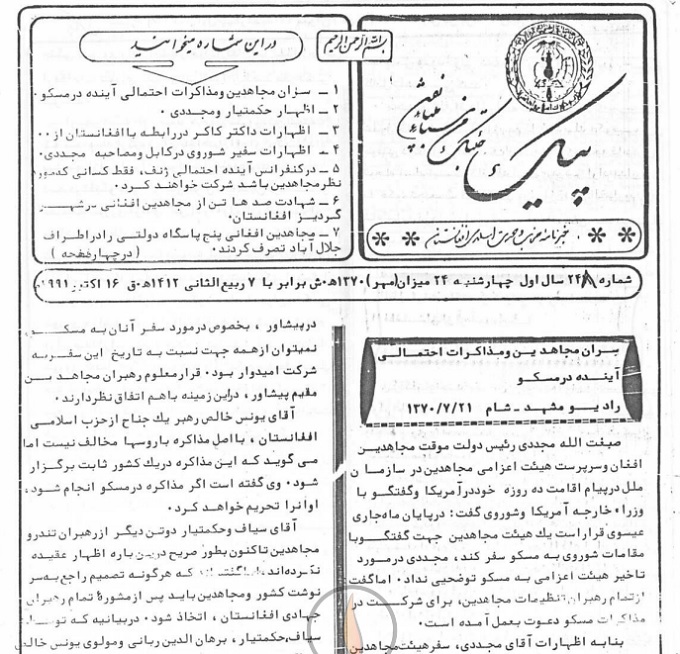 بسم الله الرحمن الرحیم
در این شماره میخوانید
۱ ـ سران مجاهدین ومذاکرات احتمالی آینده در مسکو۰
۲ ـ اظهار حکمتیار ومجددی ۰
۳ ـ اظهارات داکتر کاکر در رابطه با افغانستان از ۰۰
۴ ـ اظهارات سفیر شوروی در کابل ومصاحبه مجددی۰
۵ ـ در کنفرانس آینده احتمالی ژنف، فقط کسانی که مورد
نظر مجاهدین باشد شرکت خواهند کرد۰
۶ ـ شهادت صد ها تن از مجاهدین افغانی در شهر
گردیز افغانستان۰
۷ ـ مجاهدین افغانی پنج پاسگاه دولتی را در اطراف
جلال آباد تصرف کردند۰ ( در چهار صفحه )
پیک
خبرنامه حزب وحدت اسلامی افغانستان
شماره ۲۴۸ سال اول چهارشنبه ۲۴ میزان (مهر) ۱۳۷۰ هـ ش برابر با ۷ ربیع الثانی ۱۴۱۲ هـ ق ۱۶ اکتبر ۱۹۹۱م
سران مجاهدین ومذاکرات احتمالی
آینده در مسکو
رادیو مشهد ـ شام ۱۳۷۰/۷/۲۱
صبغت الله مجددی رئیس دولت موقت مجاهدین
افغان وسرپرست هیئت اعزامی مجاهدین در سازمان
ملل در پیام اقامت ده روزه خود در آمریکا وگفتگو با
وزراء خارجه آمریکا وشوروی گفت: در پایان ماه جاری
عیسوی قرار است یک هیئت مجاهدین جهت گفتگو با
مقامات شوروی به مسکو سفر کند، مجددی در مورد
تاخیر هیئت اعزامی به مسکو توضحیی نداد۰ اما گفت
از تمام رهبران تنظیمات مجاهدین، برای شرکت در
مذاکرات مسکو دعوت بعمل آمده است۰
بنا به اظهارات آقای مجددی، سفر هیئت مجاهدین
در پیشاور ، بخصوص در مورد سفر آنان به مسکو
نمیتوان از همه جهت نسبت به تاریخ این سفر به
شرکت امیدوار بود۰ قرار معلوم رهبران مجاهدین
مقیم پیشاور ، در این زمینه باهم اتفاق نظر دارند۰
آقای یونس خالص رهبر یك جناح از حزب اسلامی
افغانستان ، با اصل مذاکره با روسها مخالف نیست اما
می گوید که این مذاکره در یك کشور ثابت برگزار
شود۰ وی گفته است اگر مذاکره در مسکو انجام شود،
او انرا تحریم خواهد کرد۰
آقای سیاف وحکمتیار دوتن دیگر از رهبران تندرو
مجاهدین تاکنون بطور صریح در بین باره اظهار عقیده
نکرده اند، اما گفته اند که هرگونه تصمیم راجع به سر
نوشت کشور ومجاهدین باید پس از مشوره تمام رهبران
جهادی افغانستان ، اتخاذ شود۰ در بیانیه که توسط
سیاف، حکمتیار ، برهان الدین ربانی ومولوی یونس خالص